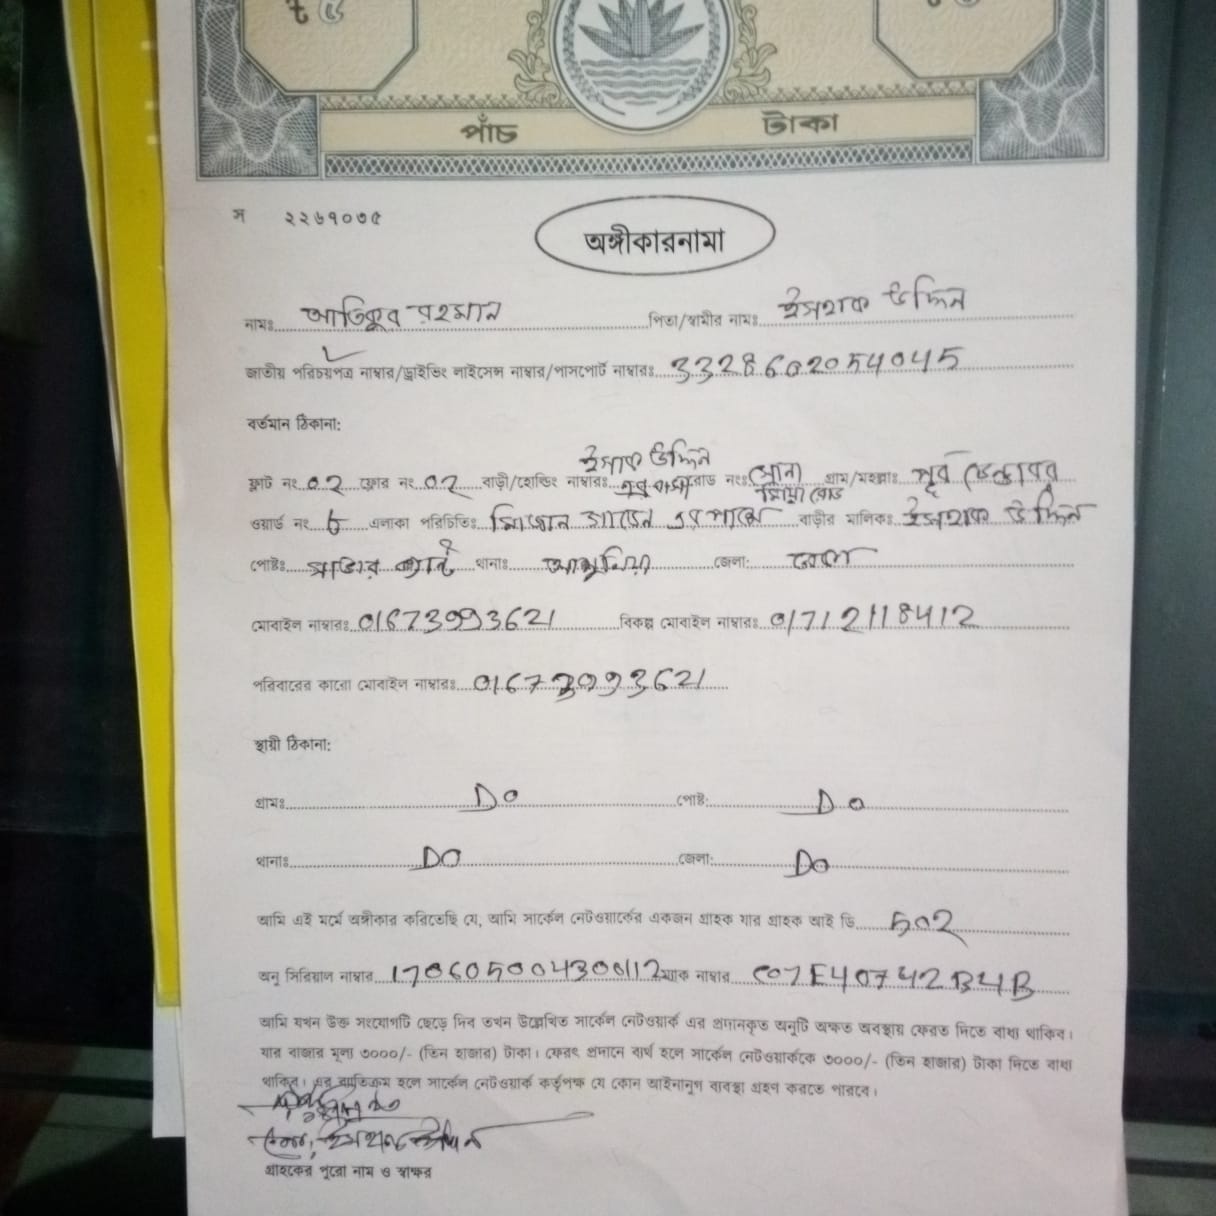 ৳ ৫ ৫
পাঁচ টাকা
স ২২৬৭০৩৫
অঙ্গীকারনামা
নামঃ আতিকুর রহমান পিতা/স্বামীর নামঃ ইসহাক উদ্দিন
জাতীয় পরিচয়পত্র নাম্বার/ড্রাইভিং লাইসেন্স নাম্বার/পাসপোর্ট নাম্বারঃ 3328602054045
বর্তমান ঠিকানা:
ইসাক উদ্দিন
ফ্লাট নং 02 ফ্লোর নং 02 বাড়ী/হোল্ডিং নাম্বারঃ এর বাসা রোড নংঃ সোনা গ্রাম/মহল্লাঃ পূর্ব ডেন্ডাবর
মিয়া রোড
ওয়ার্ড নং 6 এলাকা পরিচিতিঃ এর পাশে বাড়ীর মালিকঃ ইসহাক উদ্দিন
পোষ্টঃ সাভার ক্যান্ট থানাঃ আশুলিয়া জেলা: ঢাকা
মোবাইল নাম্বারঃ 01673993621 বিকল্প মোবাইল নাম্বারঃ 01712118412
পরিবারের কারো মোবাইল নাম্বারঃ 01673993621
স্থায়ী ঠিকানা:
গ্রামঃ Do পোষ্ট: Do
থানাঃ DO জেলা: Do
আমি এই মর্মে অঙ্গীকার করিতেছি যে, আমি সার্কেল নেটওয়ার্কের একজন গ্রাহক যার গ্রাহক আই ডি 502
অনু সিরিয়াল নাম্বার 170605004300112 ম্যাক নাম্বার C07E40742B4B
আমি যখন উক্ত সংযোগটি ছেড়ে দিব তখন উল্লেখিত সার্কেল নেটওয়ার্ক এর প্রদানকৃত অনুটি অক্ষত অবস্থায় ফেরত দিতে বাধ্য থাকিব।
যার বাজার মূল্য ৩০০০/- (তিন হাজার) টাকা। ফেরৎ প্রদানে ব্যর্থ হলে সার্কেল নেটওয়ার্ককে ৩০০০/- (তিন হাজার) টাকা দিতে বাধ্য
থাকিব। এর ব্যতিক্রম হলে সার্কেল নেটওয়ার্ক কর্তৃপক্ষ যে কোন আইনানুগ ব্যবস্থা গ্রহণ করতে পারবে।
গ্রাহকের পুরো নাম ও স্বাক্ষর